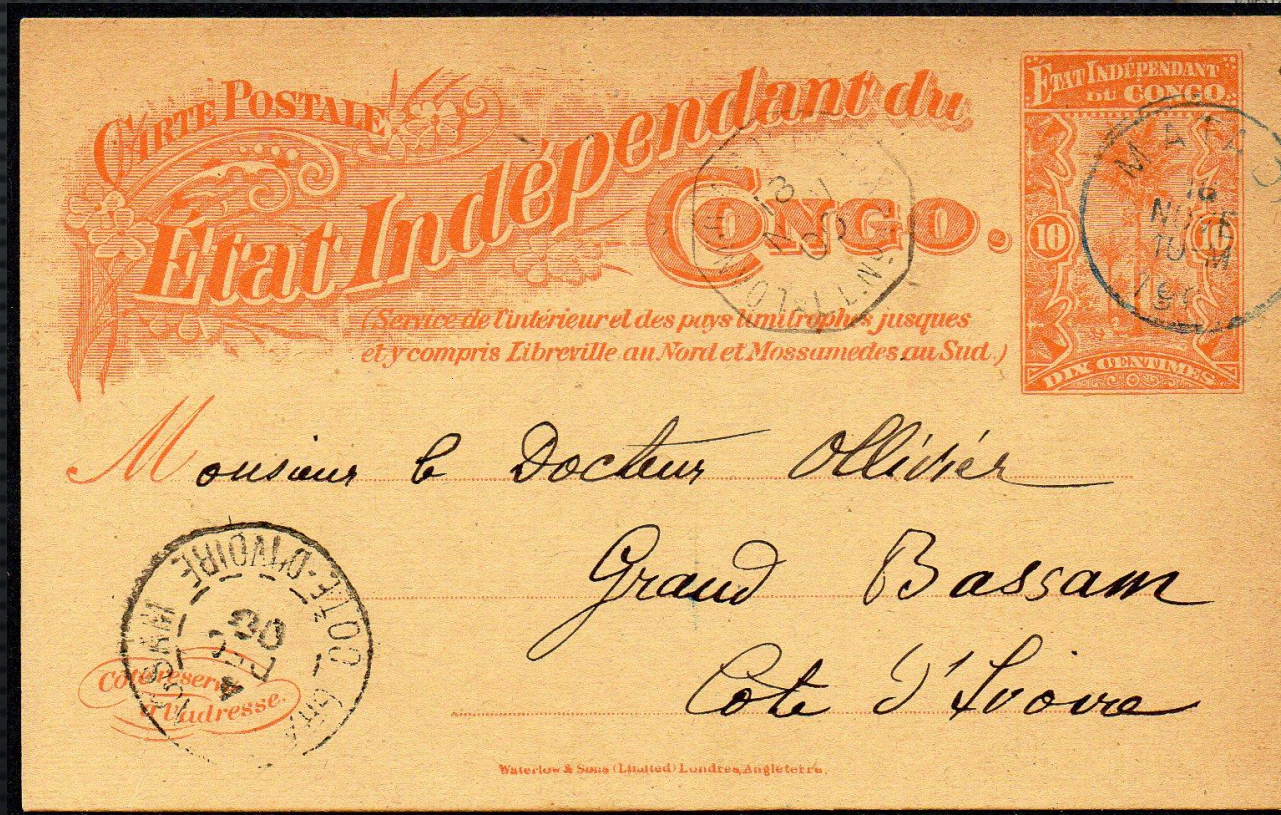 CARTE POSTALE
État Indépendant du
CONGO.
(Service de l'intérieur et des pays limitrophes jusques
et y compris Libreville au Nord et Mossamedes au Sud.)
ÉTAT INDÉPENDANT
DU CONGO.
10 10
DIX CENTIMES
MATADI
16
NOV
Monsieur le Docteur Ollivier
Grand Bassam
Cote d'Ivoire
COTE-D'IVOIRE
BASSAM
Côté réservé
à l'adresse.
Waterlow & Sons (Limited) Londres, Angleterre.